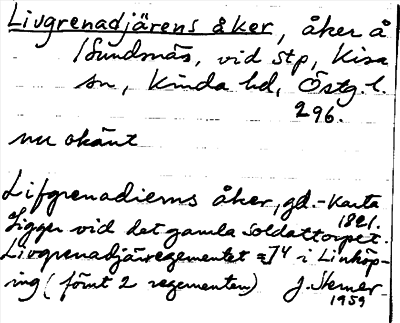 Livgrenadjärens åker, åker å
Sundsnäs, vid stp, Kisa
sn, Kinda hd, Östg. l.
296.
nu okänt
Lifgrenadierns åker, gd.-karta
1821.
Ligger vid det gamla soldattorpet.
Livgrenadjärregementet = I 4 i Linköp-
ing (förut 2 regementen) J. Sterner
1959